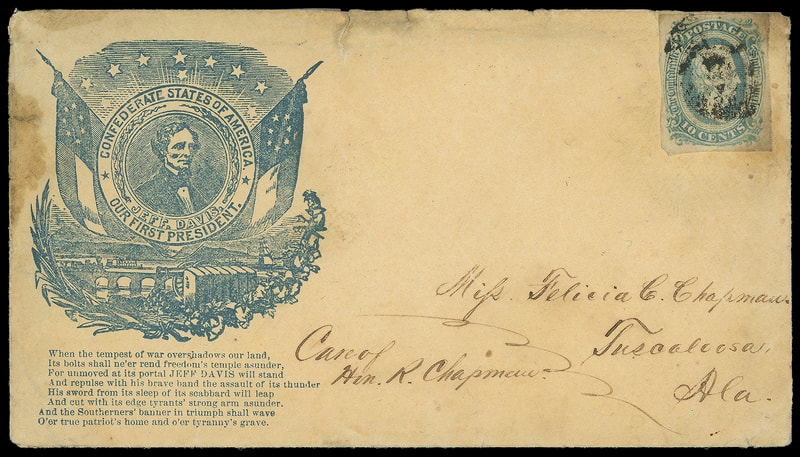 CONFEDERATE STATES OF AMERICA.
JEFF. DAVIS,
OUR FIRST PRESIDENT.
When the tempest of war overshadows our land,
Its bolts shall ne'er rend freedom's temple asunder,
For unmoved at its portal JEFF DAVIS will stand
And repulse with his brave band the assault of its thunder
His sword from its sleep of its scabbard will leap
And cut with its edge tyrants' strong arm asunder.
And the Southerners' banner in triumph shall wave
O'er true patriot's home and o'er tyranny's grave.
POSTAGE
10 CENTS
Miss. Felicia C. Chapman
Tuscaloosa,
Ala.
Care of
Hon. R. Chapman